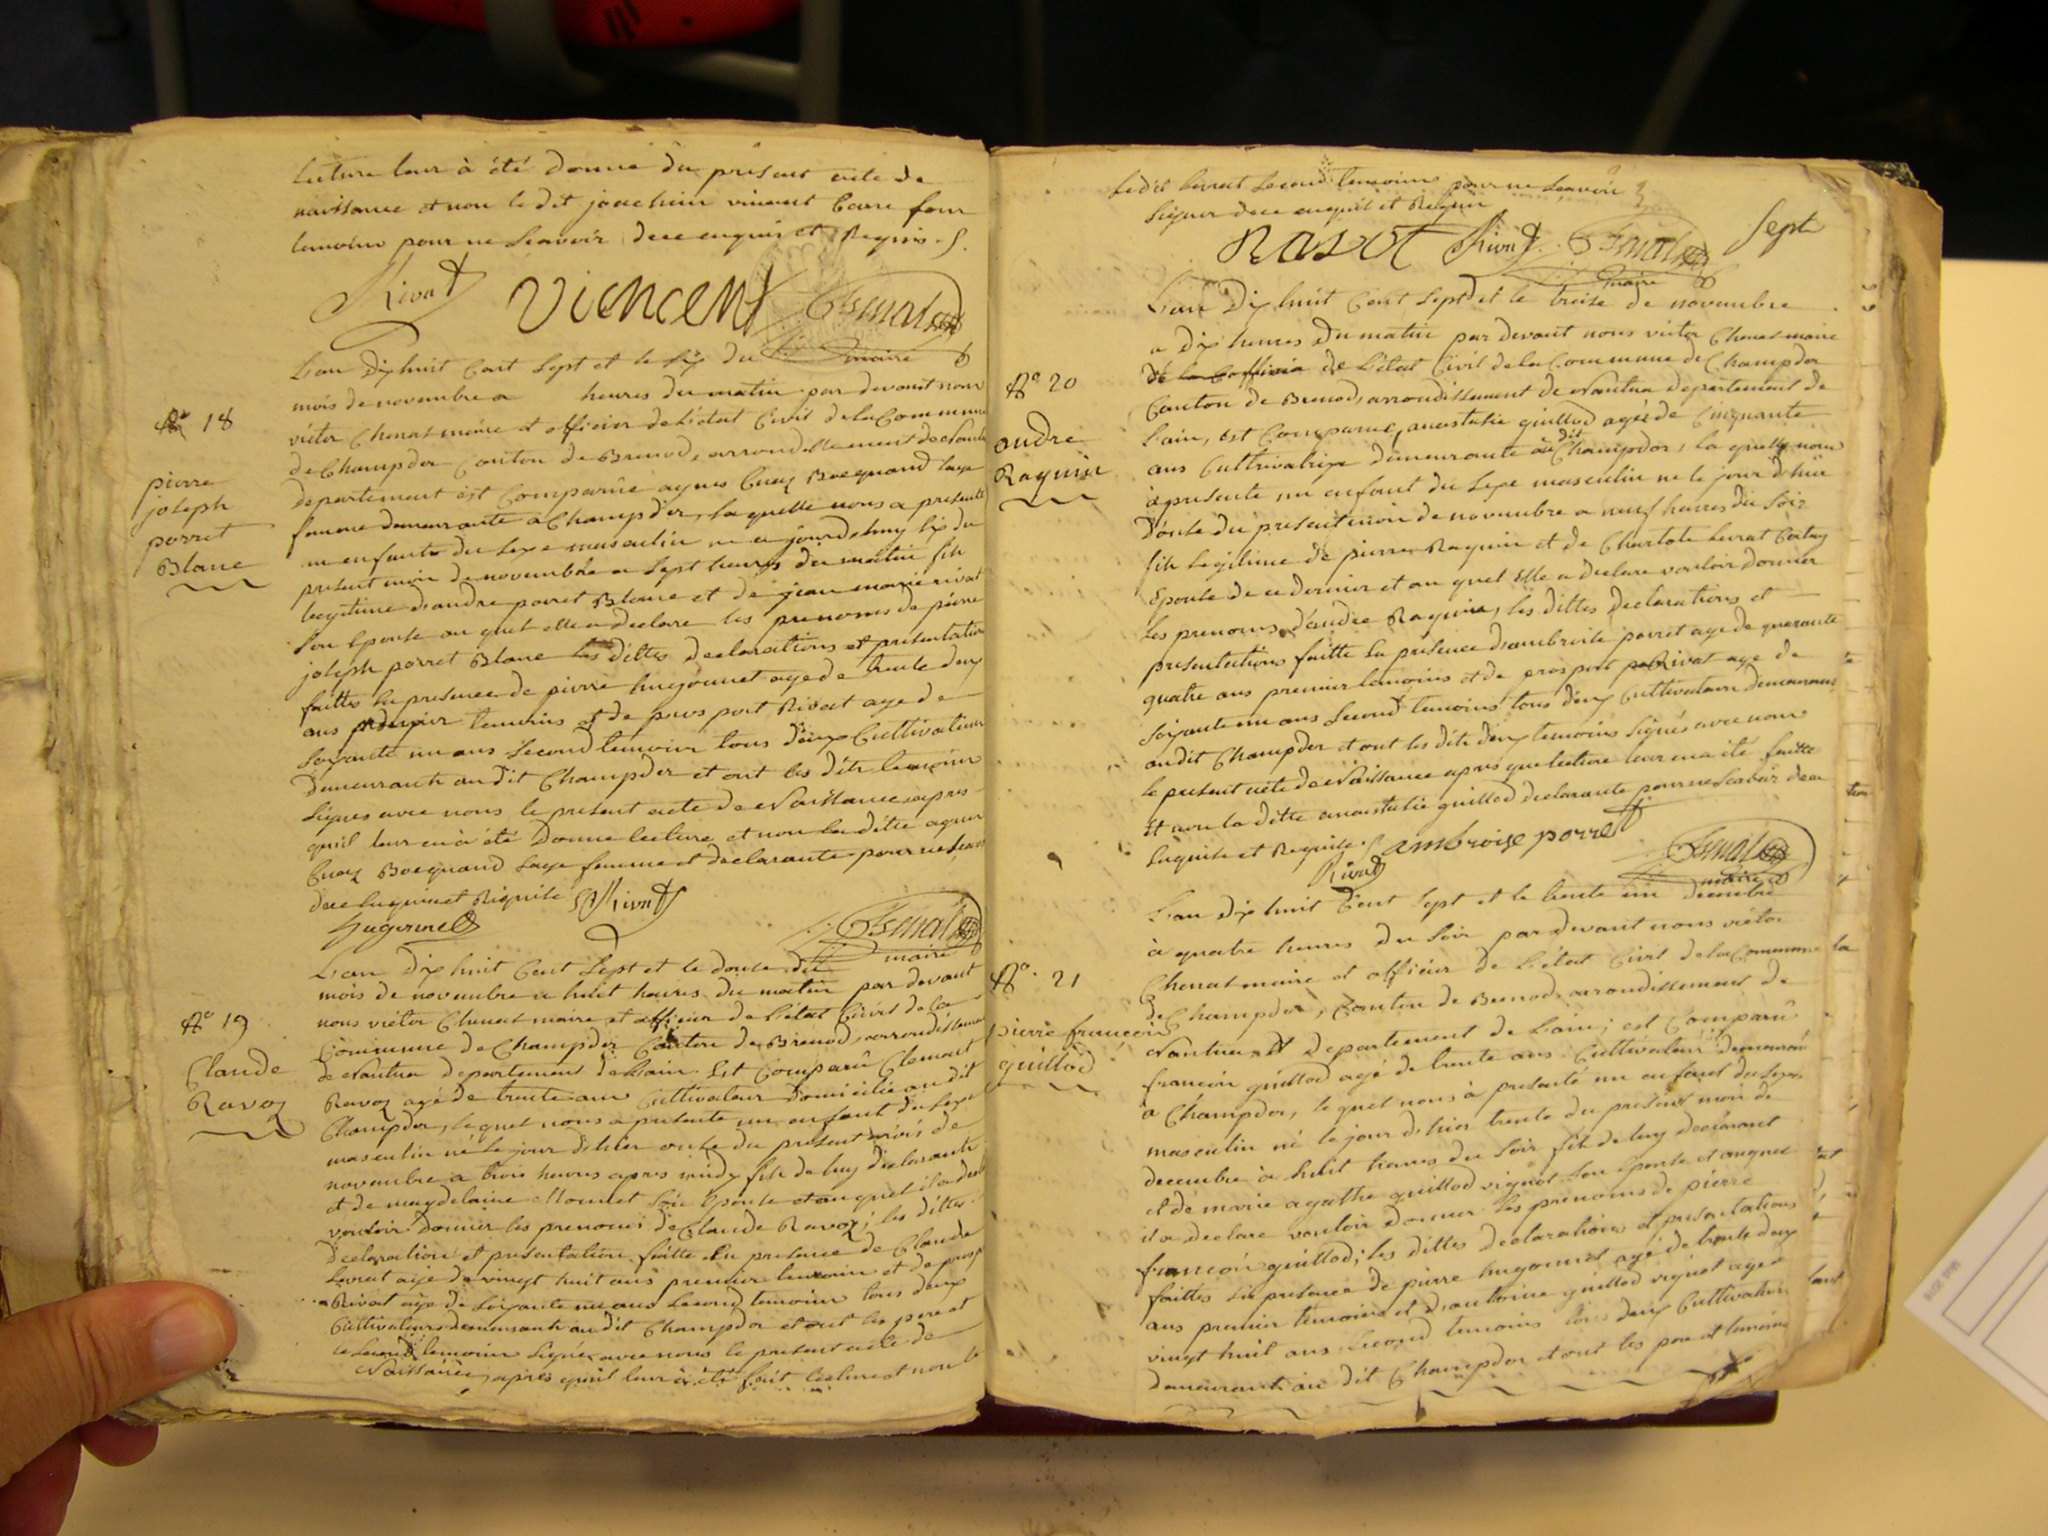 lecture leur à été donné du présent acte de
naissance et non le dit joachim vincent Carre four
temoins pour ne Scavoir dece enquis et Requis. S.
Rivat Viencent Chenat
maire
L'an dix huit Cent Sept et le six du
mois de novembre a heures du matin par devant nous
victor Chenat maire et officier de L'etat Civil de la Commune
de Champdor Canton de Brenod, arrondissement de Nantua
departement est Comparüe agnes Bocquand Sage
femme demeurante a Champdor, la quelle nous a presenté
un enfant du Sexe masculin né ce jourdhuy six du
present mois de novembre a Sept heures du matin fils
legitime d'andre porret Blanc et de jean marie rivat
Son Epouse au quel elle a declaré les prenoms de pierre
joseph porret Blanc les dittes declarations et presentation
faittes En presence de pierre hugonnet age de trente deux
ans premier temoins et de prosport Rivat age de
Soixante un ans Second temoin tous deux Cultivateurs
Demeurants au dit Champdor et ont les dits temoins
Signes avec nous le present acte de Naissance apres
qu'il leur en à été Donné lecture et non la ditte agnes
Bocquand Sage femme et declarante pour ne Scavoir
dece Enquise et Requise Rivat
hugonnet Chenat
maire
N° 18
pierre
joseph
porret
Blanc
L'an dix huit Cent Sept et le douze du
mois de novembre a huit heures du matin par devant
nous victor Chenat maire et officier de L'état Civil de la
Commune de Champdor Canton de Brenod, arrondissement
de Nantua departement de L'ain. Est Comparu Clement
Ravoz agé de trente ans Cultivateur domicilié au dit
Champdor, le quel nous a presenté un enfant du Sexe
masculin né le jour d'hier onze du present mois de
novembre a trois heures apres midy fils de luy declarant
et de magdelaine Son Epouse et au quel il a declaré
vouloir Donner les prenoms de Claude Ravoz; les dittes
Declaration et presentation faitte En presence de Claude
Levrat agé de vingt huit ans premier temoin et de prosp
Rivat age de Soixante un ans Second temoin tous deux
Cultivateurs demeurants au dit Champdor et ont les pere et
le Second temoin Signés avec nous le present acte de
Naissance, apres qu'il leur à été fait lecture et non le
N° 19
Claude
Ravoz
Ledit levrat Second temoins pour ne Scavoir
Signer dece enquis et Requis
RAVOZ Rivat Chenat Sept
maire
L'an Dix huit Cent Sept et le treize de novembre
a Dix heures du matin par devant nous victor Chenat maire
officier de L'état Civil de la Commune de Champdor
Canton de Brenod, arrondissement de Nantua departement de
L'ain, est Comparue, anastasie guillod agée de Cinquante
ans Cultivatrice demeurante au dit Champdor, la quelle nous
a presenté un enfant du Sexe masculin né le jour d'hier
douze du present mois de novembre a neuf heures du Soir
fils Legitime de pierre Raquin et de Charlote Levrat
Epouse de ce dernier et au quel Elle a declaré vouloir donner
Les prenoms, d'andre Raquin, les dittes declarations et
presentations faitte En presence d'ambroise porret age de quarante
quatre ans premier temoins et de prosport Rivat age de
Soixante un ans Second temoins tous deux Cultivateurs demeurants
au dit Champdor et ont les dits deux temoins Signés avec nous
le present acte de Naissance apres que lecture leur en a été faitte
Et non la ditte anastasie guillod declarante pour ne Scavoir dece
Enquise et Requise. ambroise porret
Rivat Chenat
maire
N° 20
andre
Raquin
L'an dix huit Cent Sept et le trente un decembre
à quatre heures du Soir par devant nous victor
Chenat maire et officier de L'état Civil de la Commune
de Champdor, Canton de Brenod, arrondissement de
Nantua departement de L'ain; est Comparû
francois guillod agé de trente ans Cultivateur demeurant
à Champdor, le quel nous à presenté un enfant du Sexe
masculin né le jour d'hier trente du present mois de
decembre à huit heures du Soir fils de luy declarant
et de marie agathe guillod vignot Son Epouse et auquel
il a declaré vouloir donner les prenoms de pierre
francois guillod; les dittes declarations et presentations
faittes En presence de pierre hugonnet agé de trente deux
ans premier temoins et d'antoine guillod vignot agé de
vingt huit ans Second temoins tous deux Cultivateurs
demeurants au dit Champdor et ont les pere et temoins
N° 21
pierre francois
guillod